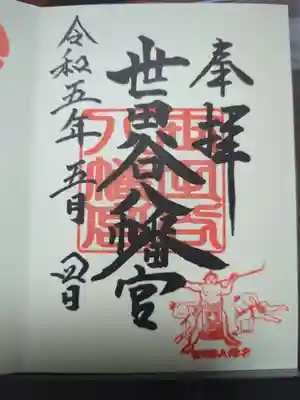 奉拝
世田谷八幡宮
令和五年五月四日